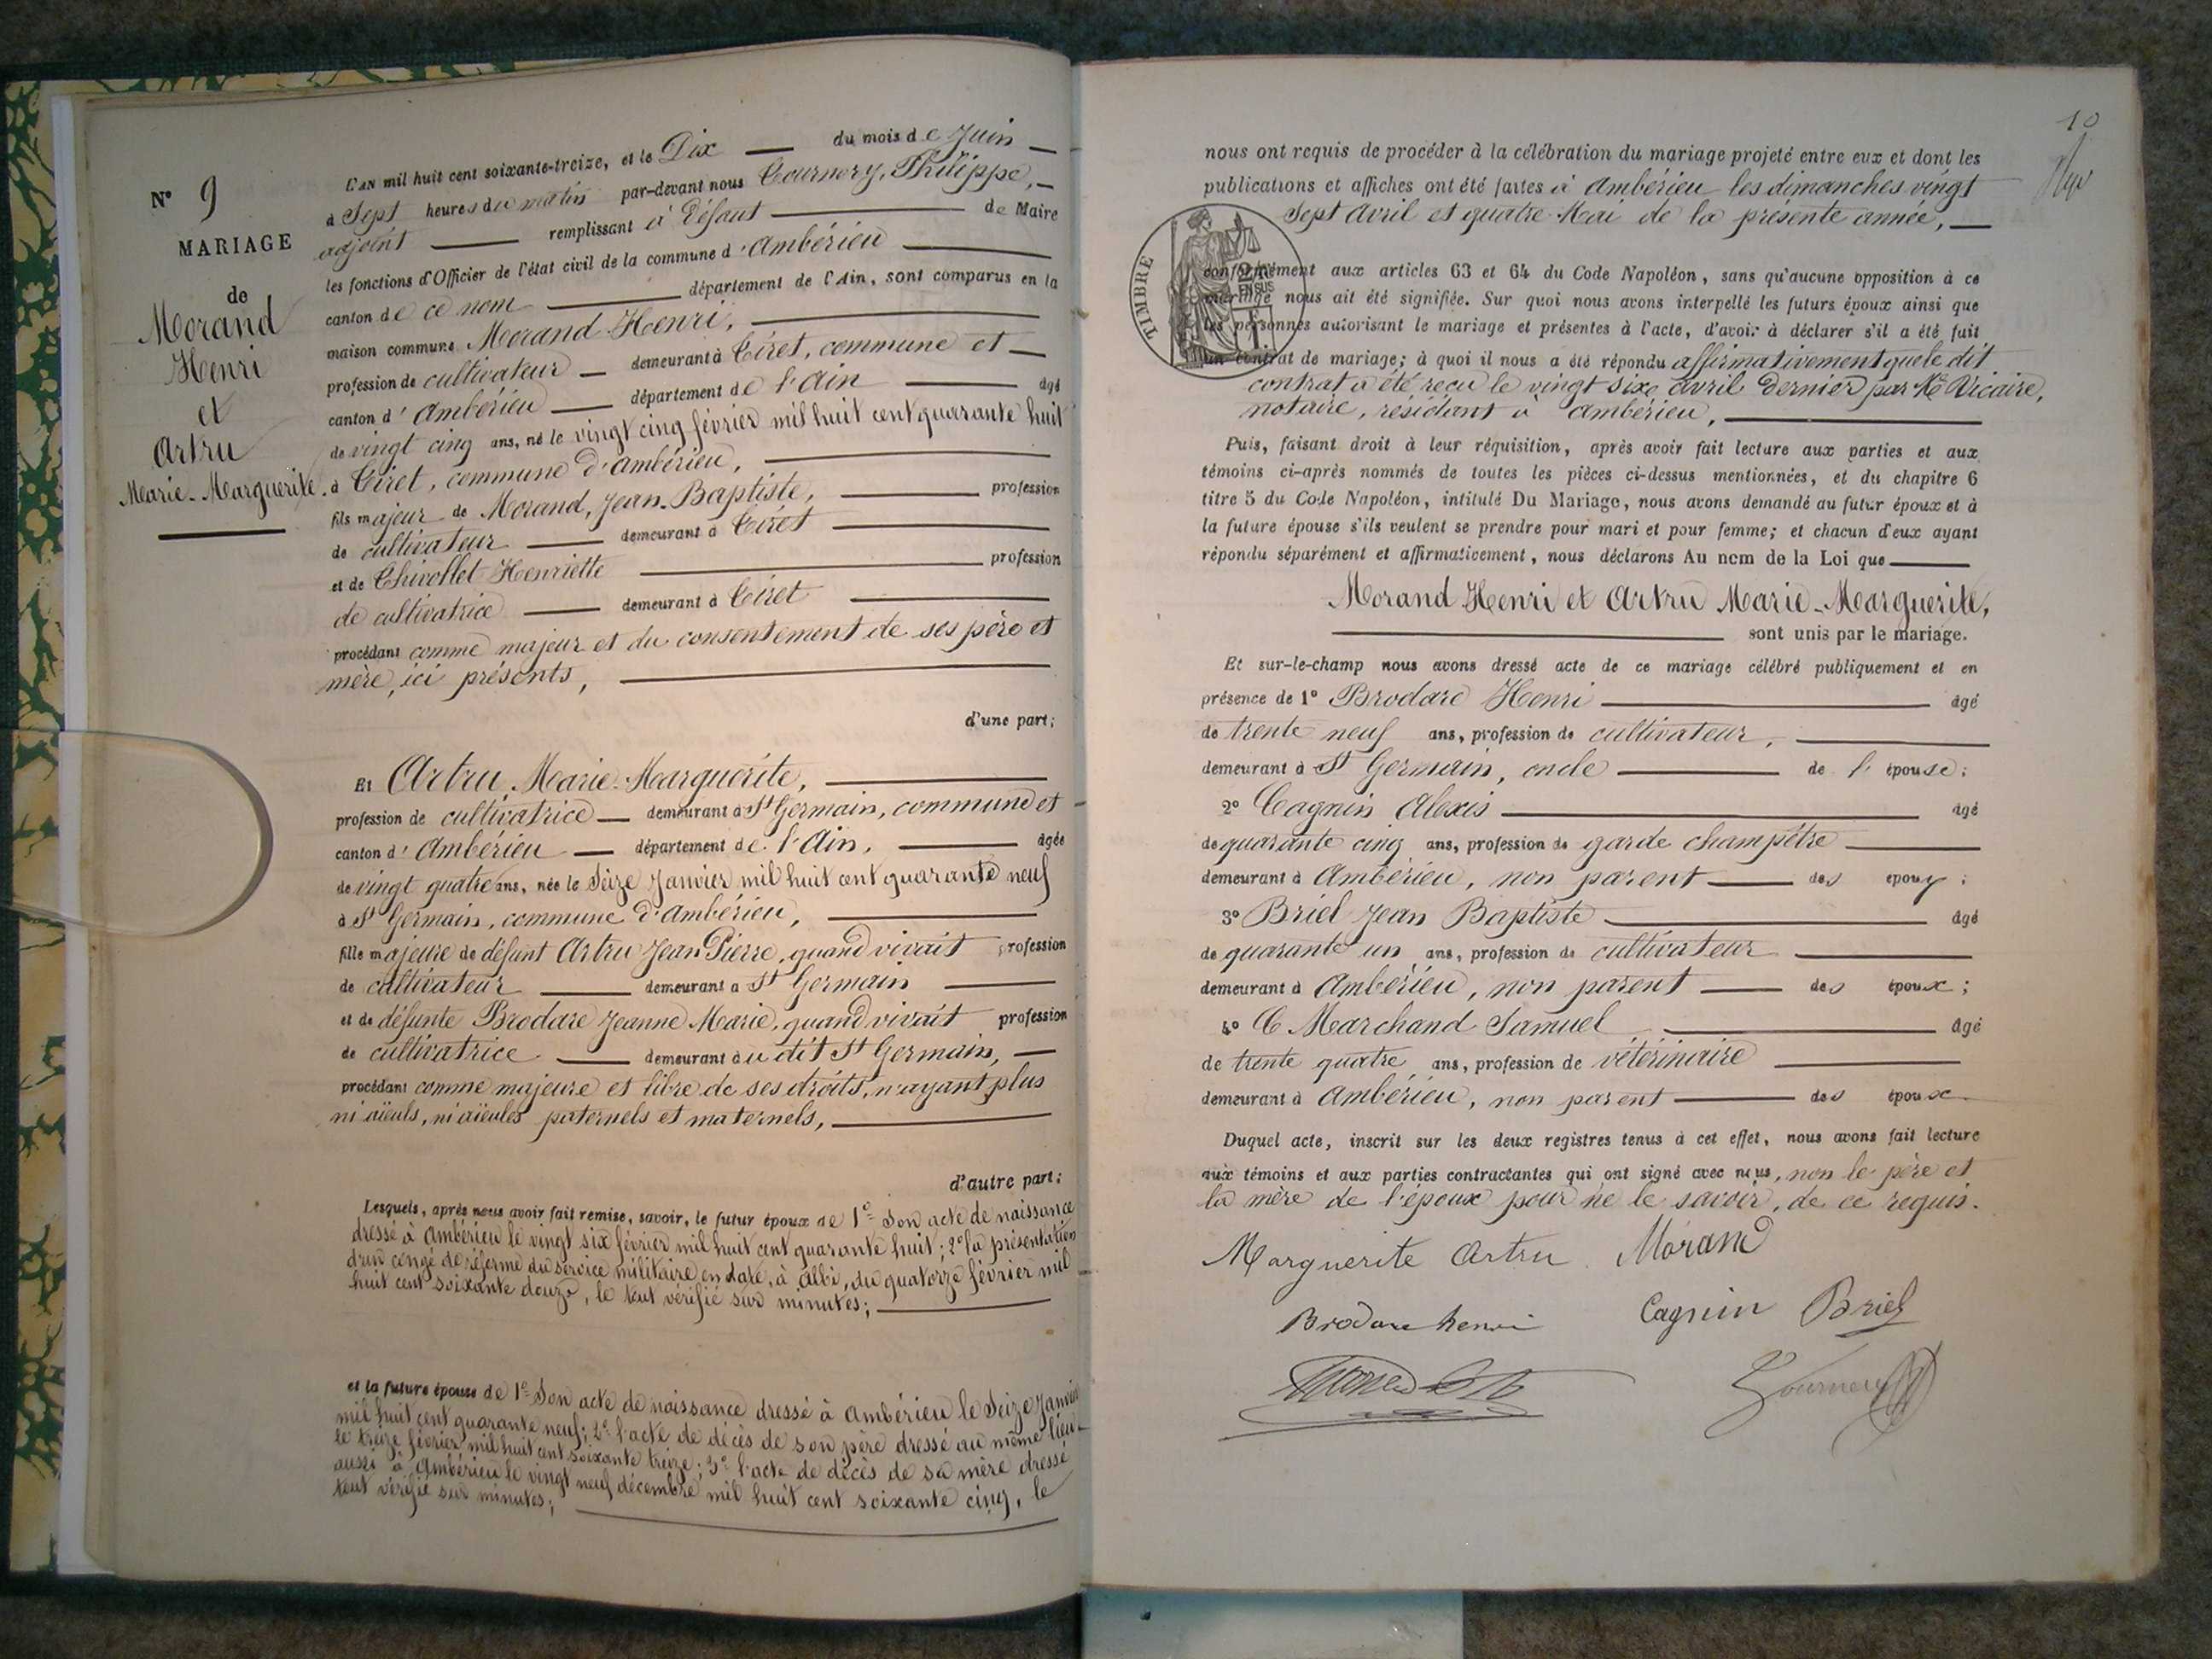 N° 9
MARIAGE
de
Morand
Henri
et
Artru
Marie-Marguerite.
L'AN mil huit cent soixante-treize, et le Dix du mois de Juin
à Sept heures du matin par-devant nous Tournery, Philippe,
adjoint remplissant à défaut de Maire
les fonctions d'Officier de l'état civil de la commune d'Ambérieu
canton de ce nom département de l'Ain, sont comparus en la
maison commune Morand Henri,
profession de cultivateur demeurant à Tiret, commune et
canton d'Ambérieu département de l'Ain âgé
de vingt cinq ans, né le vingt cinq février mil huit cent quarante huit
à Tiret, commune d'Ambérieu,
fils majeur de Morand, Jean-Baptiste, profession
de cultivateur demeurant à Tiret
et de Chivollet Henriette profession
de cultivatrice demeurant à Tiret
procédant comme majeur et du consentement de ses père et
mère, ici présents,
d'une part;
Et Artru, Marie-Marguerite,
profession de cultivatrice demeurant à St Germain, commune et
canton d'Ambérieu département de l'Ain, âgée
de vingt quatre ans, née le Seize Janvier mil huit cent quarante neuf
à St Germain, commune d'Ambérieu,
fille majeure de défunt Artru Jean Pierre, quand vivait profession
de cultivateur demeurant à St Germain
et de défunte Brodare Jeanne Marie, quand vivait profession
de cultivatrice demeurant au dit St Germain,
procédant comme majeure et libre de ses droits, n'ayant plus
ni aïeuls, ni aïeules paternels et maternels,
d'autre part;
Lesquels, après nous avoir fait remise, savoir, le futur époux de 1° Son acte de naissance
dressé à Ambérieu le vingt six février mil huit cent quarante huit; 2° la présentation
d'un congé de réforme du service militaire en date, à Albi, du quatorze février mil
huit cent soixante douze, le tout vérifié sur minutes;
et la future épouse de 1° Son acte de naissance dressé à Ambérieu le Seize Janvier
mil huit cent quarante neuf; 2° l'acte de décès de son père dressé au même lieu
le treize février mil huit cent soixante treize; 3° l'acte de décès de sa mère dressé
aussi à Ambérieu le vingt neuf décembre mil huit cent soixante cinq, le
tout vérifié sur minutes;
10
nous ont requis de procéder à la célébration du mariage projeté entre eux et dont les
publications et affiches ont été faites à Ambérieu les dimanches vingt
Sept Avril et quatre Mai de la présente année,
TIMBRE
EN SUS
conformément aux articles 63 et 64 du Code Napoléon, sans qu'aucune opposition à ce
mariage nous ait été signifiée. Sur quoi nous avons interpellé les futurs époux ainsi que
les personnes autorisant le mariage et présentes à l'acte, d'avoir à déclarer s'il a été fait
un contrat de mariage; à quoi il nous a été répondu affirmativement que le dit
contrat a été reçu le vingt six avril dernier par Me Vicaire,
notaire, résidant à Ambérieu,
Puis, faisant droit à leur réquisition, après avoir fait lecture aux parties et aux
témoins ci-après nommés de toutes les pièces ci-dessus mentionnées, et du chapitre 6
titre 5 du Code Napoléon, intitulé Du Mariage, nous avons demandé au futur époux et à
la future épouse s'ils veulent se prendre pour mari et pour femme; et chacun d'eux ayant
répondu séparément et affirmativement, nous déclarons Au nom de la Loi que
Morand Henri et Artru Marie-Marguerite,
sont unis par le mariage.
Et sur-le-champ nous avons dressé acte de ce mariage célébré publiquement et en
présence de 1° Brodare Henri âgé
de trente neuf ans, profession de cultivateur,
demeurant à St Germain, oncle de l'épouse;
2° Cagnin Alexis âgé
de quarante cinq ans, profession de garde champêtre
demeurant à Ambérieu, non parent des epoux;
3° Briel Jean Baptiste âgé
de quarante un ans, profession de cultivateur
demeurant à Ambérieu, non parent des époux;
4° Marchand Samuel âgé
de trente quatre ans, profession de vétérinaire
demeurant à Ambérieu, non parent des époux
Duquel acte, inscrit sur les deux registres tenus à cet effet, nous avons fait lecture
aux témoins et aux parties contractantes qui ont signé avec nous, non le père et
la mère de l'époux pour ne le savoir, de ce requis.
Marguerite Artru Morand
Brodare henri Cagnin Briel